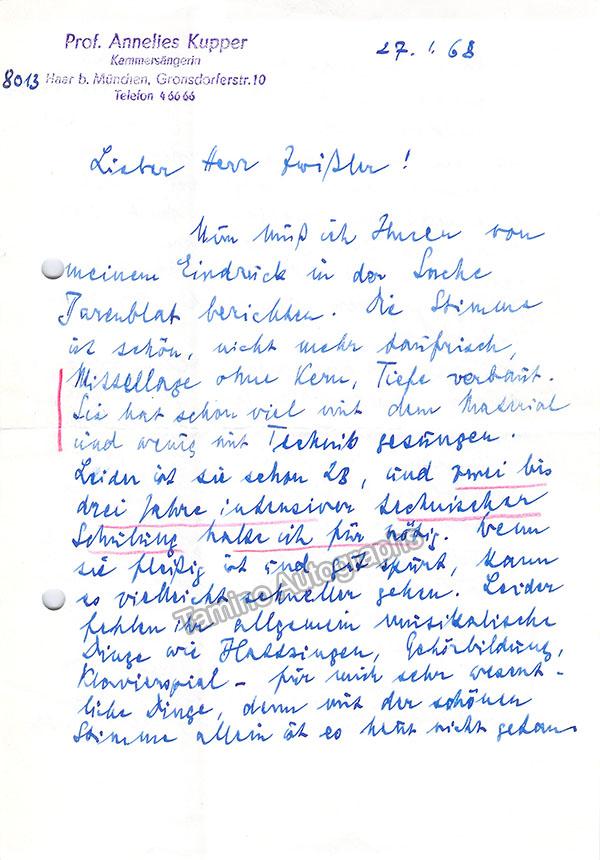 Prof. Annelies Kupper
Kammersängerin
8013 Haar b. München, Gronsdorferstr. 10
Telefon 46666
27. 1. 68
Lieber Herr Zwißler!
Nun muß ich Ihnen von
meinem Eindruck in der Sache
Tarenblat berichten. Die Stimme
ist schön, nicht mehr taufrisch,
Mittellage ohne Kern, Tiefe verbaut.
Sie hat schon viel mit dem Material
und wenig mit Technik gesungen.
Leider ist sie schon 28, und zwei bis
drei Jahre intensiver technischer
Schulung halte ich für nötig. Wenn
sie fleißig ist und gut spurt, kann
es vielleicht schneller gehen. Leider
fehlen ihr allgemein musikalische
Dinge wie Blattsingen, Gehörbildung,
Klavierspiel – für mich sehr wesent-
liche Dinge, denn mit der schönen
Stimme allein ist es heut nicht getan.
Tamino Autographs